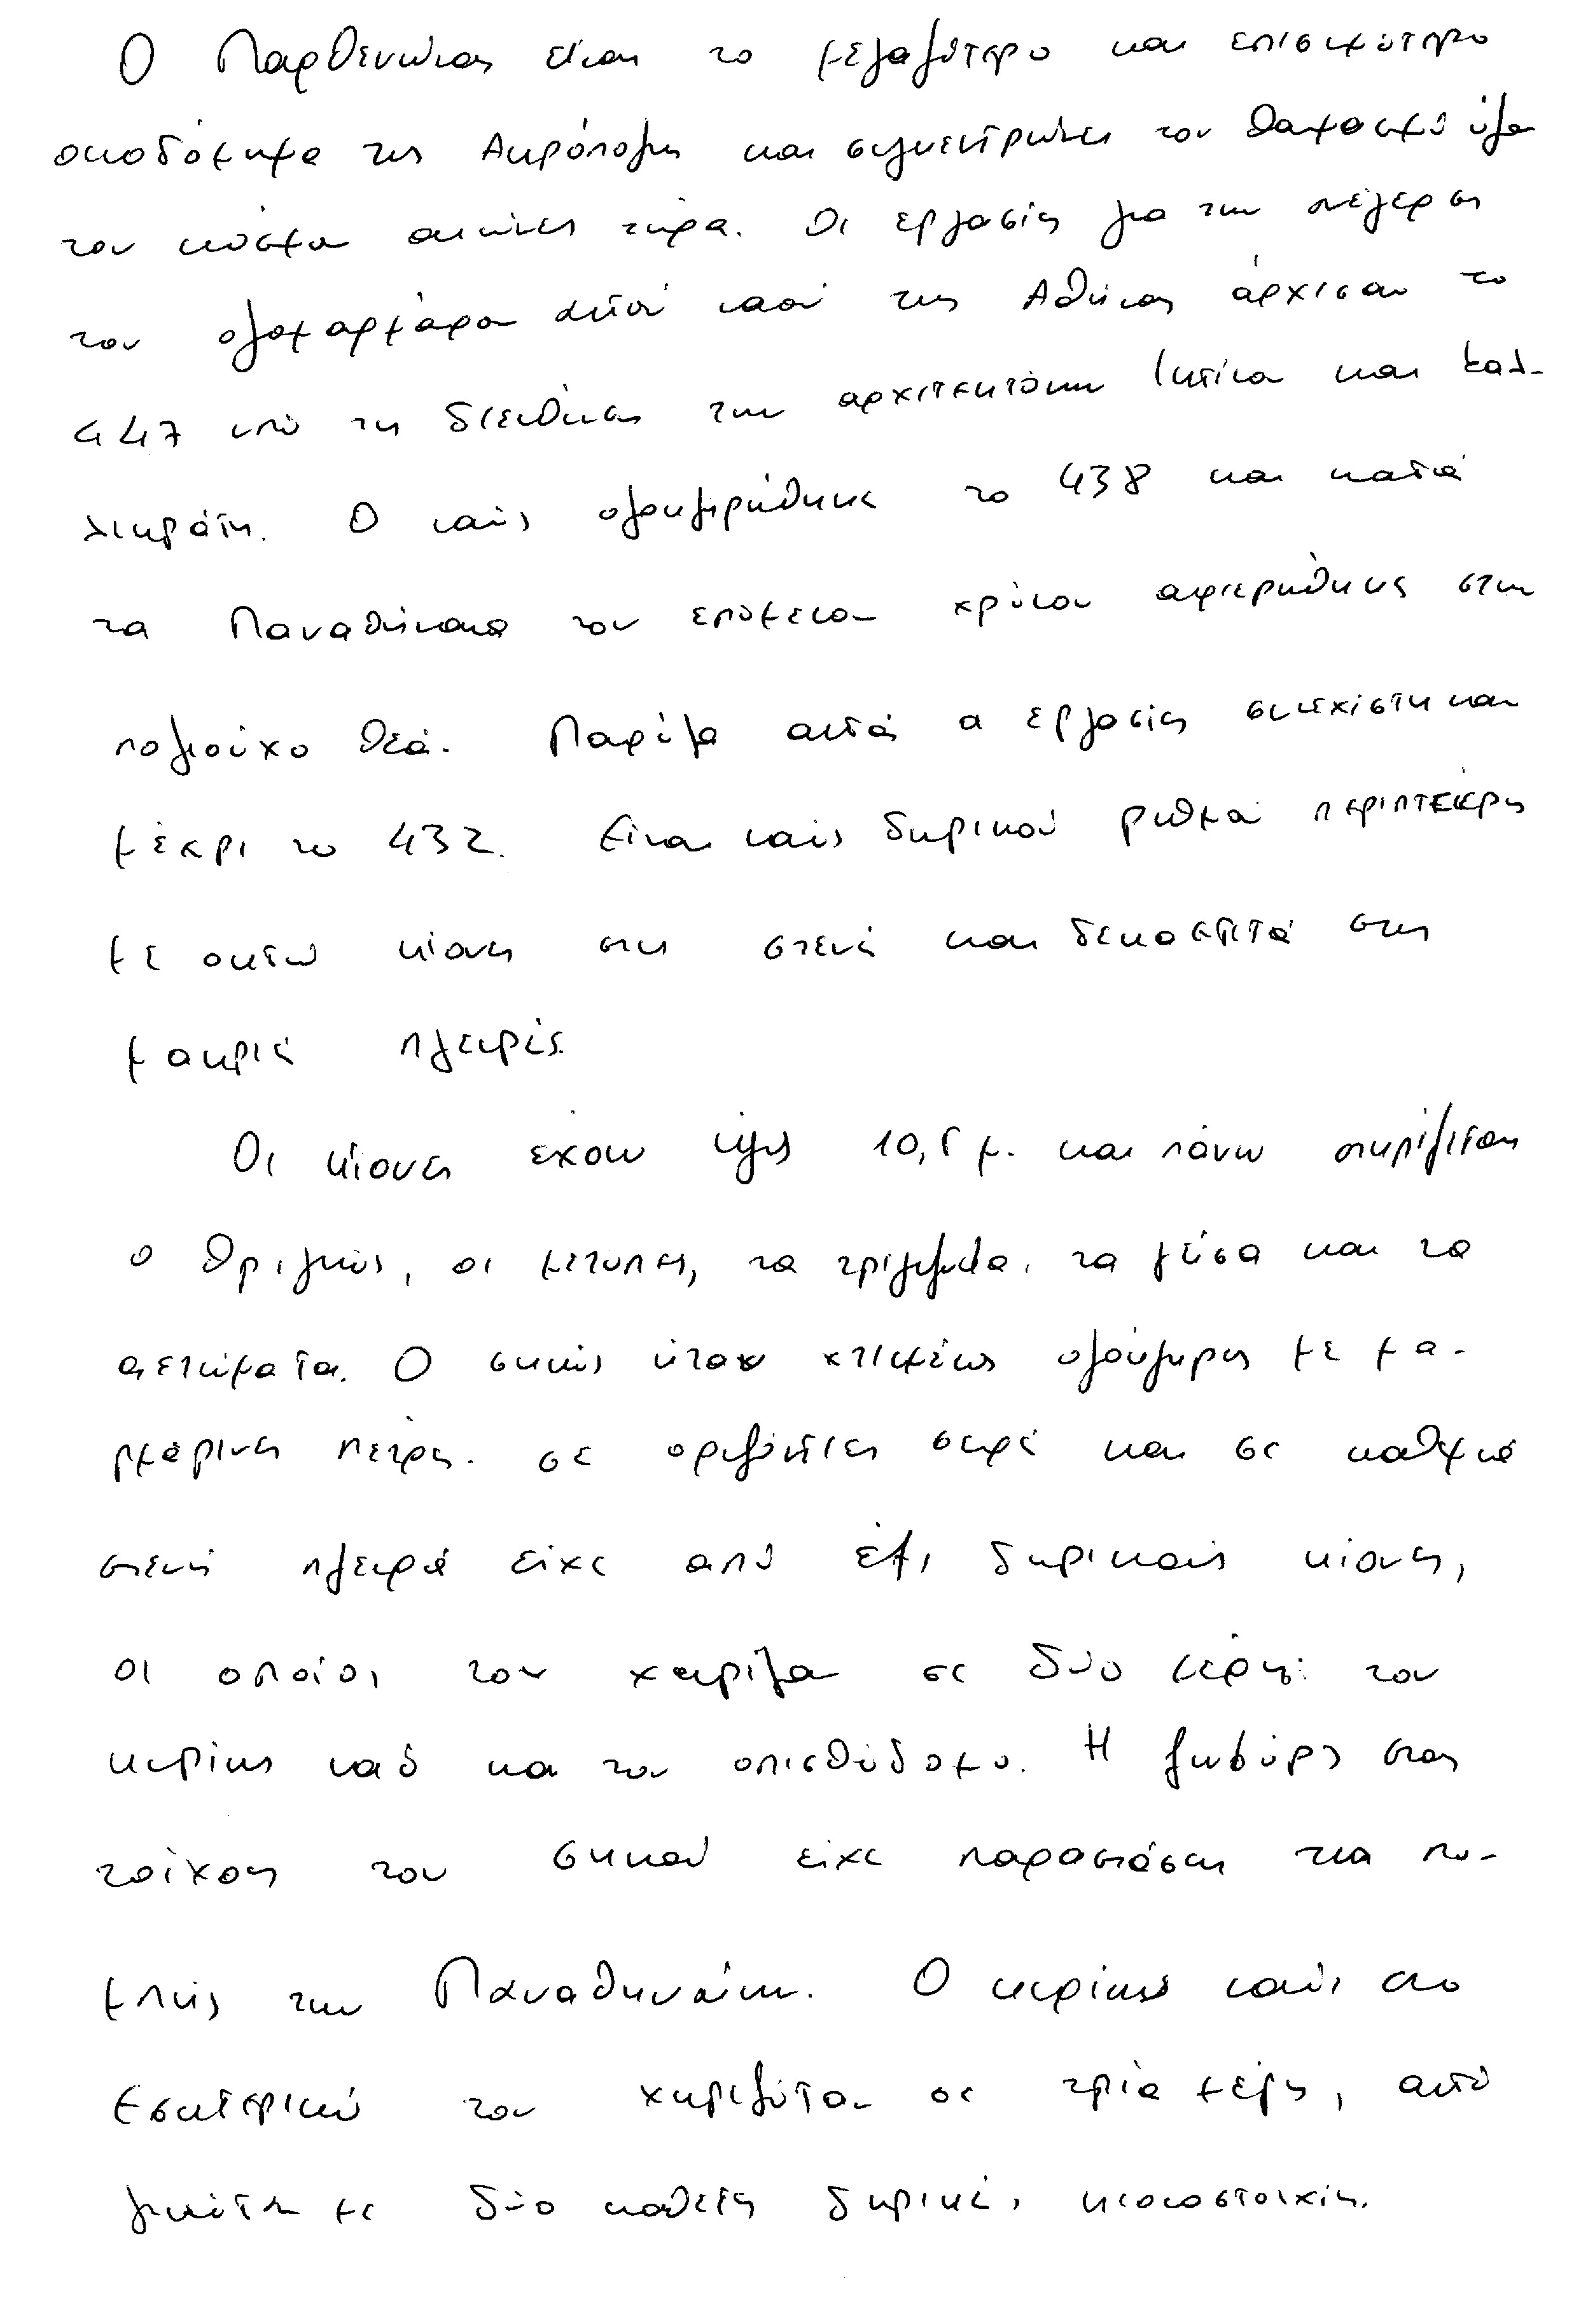 Ο Παρθενώνας είναι το μεγαλύτερο και επισημότερο
οικοδόμημα της Ακρόπολης και συγκεντρώνει τον θαυμασμό όλου
του κόσμου αιώνες τώρα. Οι εργασίες για την ανέγερση
του ολομάρμαρου αυτού ναού της Αθήνας άρχισαν το
447 υπό τη διεύθυνση των αρχιτεκτόνων Ικτίνου και Καλ-
λικράτη. Ο ναός ολοκληρώθηκε το 438 και κατά
τα Παναθήναια του επόμενου χρόνου αφιερώθηκε στην
πολιούχο θεά. Παρόλα αυτά οι εργασίες συνεχίστηκαν
μέχρι το 432. Είναι ναός δωρικού ρυθμού περίπτερος
με οκτώ κίονες στη στενή και δεκαεπτά στις
μακριές πλευρές.
Οι κίονες έχουν ύψος 10,5 μ. και πάνω στηρίζεται
ο θριγκός, οι μετόπες, τα τρίγλυφα, τα γείσα και τα
αετώματα. Ο σηκός ήταν κτισμένος ολόκληρος με μα-
ρμάρινες πέτρες σε οριζόντιες σειρές και σε καθεμιά
στενή πλευρά είχε από έξι δωρικούς κίονες,
οι οποίοι τον χώριζαν σε δύο μέρη: τον
κυρίως ναό και τον οπισθόδομο. Η ζωφόρος στους
τοίχους του σηκού είχε παραστάσεις από την πο-
μπής των Παναθηναίων. Ο κυρίως ναός στο
εσωτερικό του χωριζόταν σε τρία μέρη, αυτό
γινόταν με δύο κάθετες δωρικές κιονοστοιχίες.